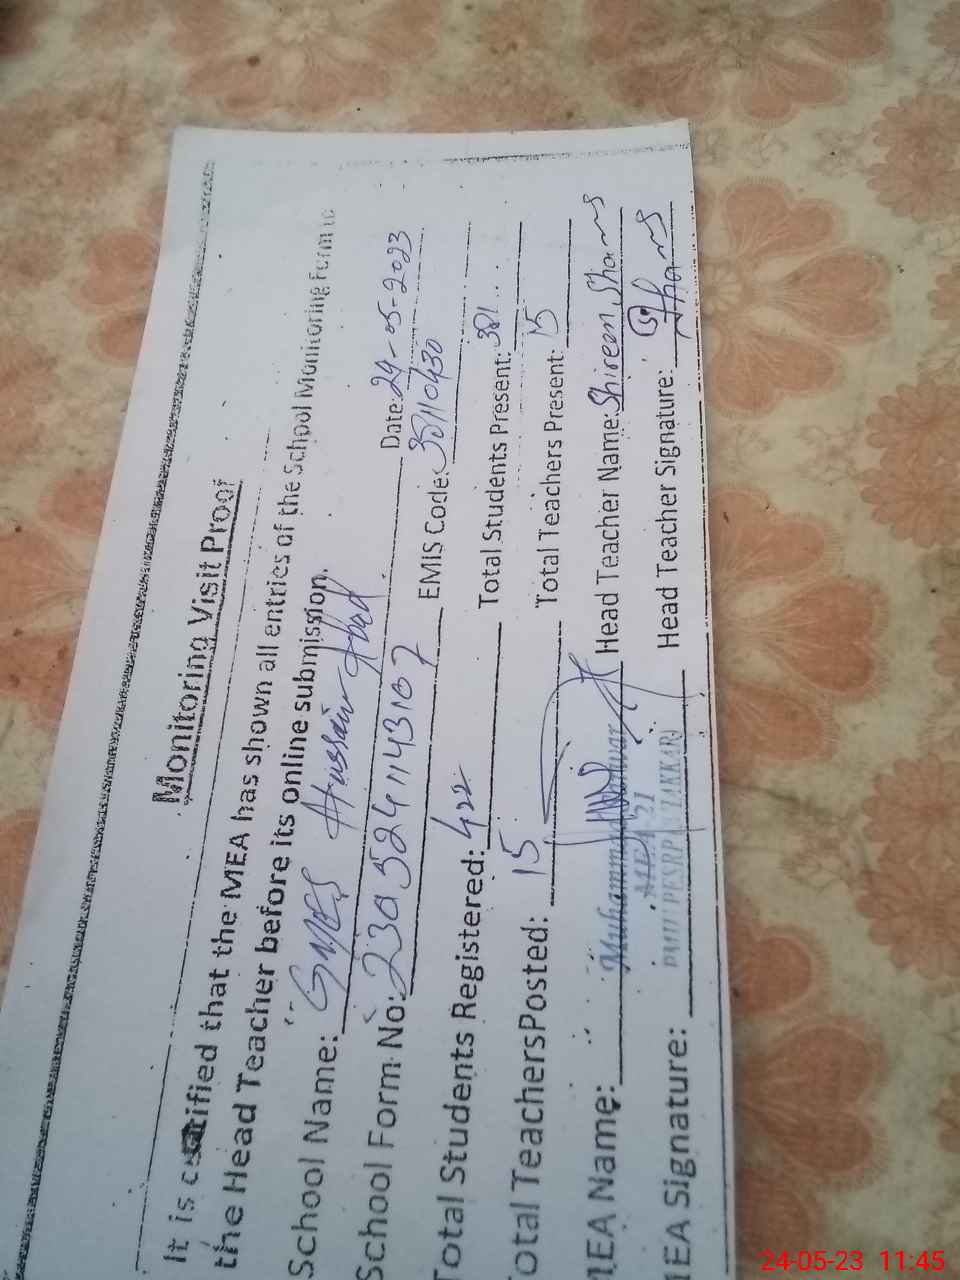 Monitoring Visit Proof
It is certified that the MEA has shown all entries of the School Monitoring Form to
the Head Teacher before its online submission.
School Name: GMES Hussain Abad Date: 24-05-2023
School Form No: 2305241143107 EMIS Code: 36110430
Total Students Registered: 422 Total Students Present: 381
Total Teachers Posted: 15 Total Teachers Present: 15
MEA Name: Muhammad Head Teacher Name: Shireen Shams
MEA 21
MEA Signature: Head Teacher Signature: Shams
24-05-23 11:45